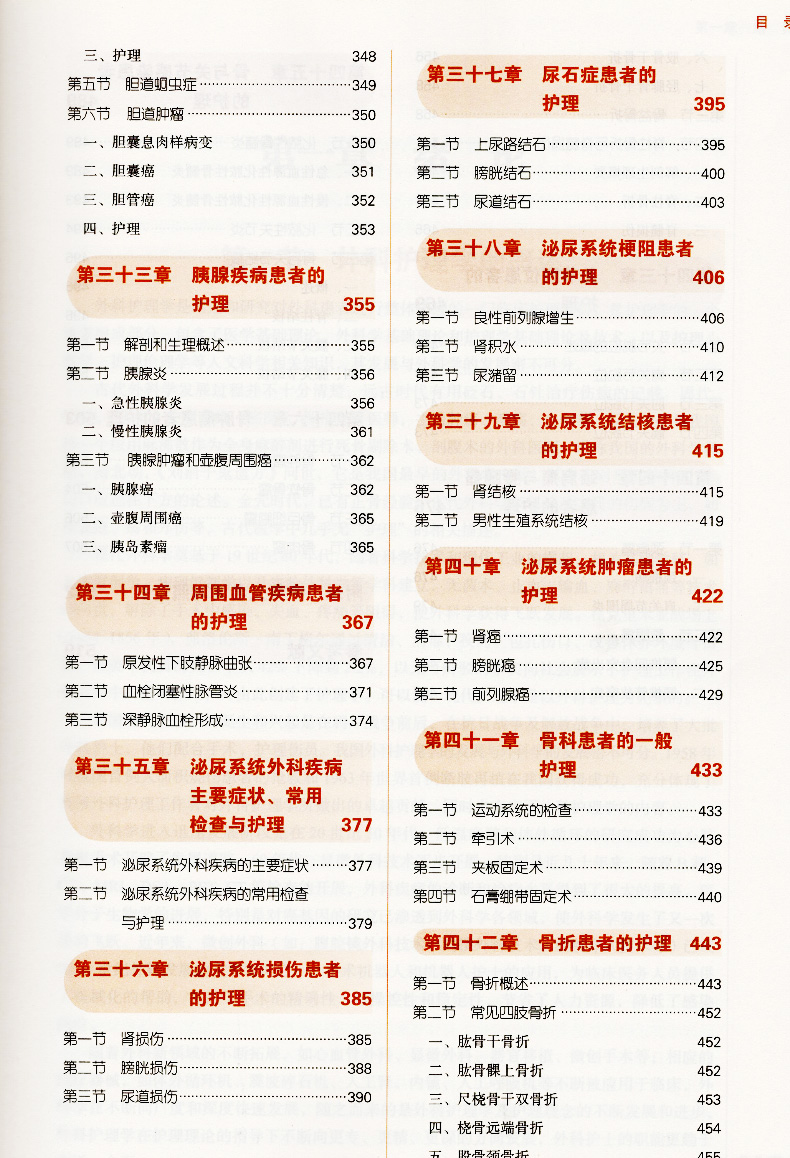 目 录
三、护理 348
第五节 胆道蛔虫症 349
第六节 胆道肿瘤 350
一、胆囊息肉样病变 350
二、胆囊癌 351
三、胆管癌 352
四、护理 353
第三十三章 胰腺疾病患者的
护理 355
第一节 解剖和生理概述 355
第二节 胰腺炎 356
一、急性胰腺炎 356
二、慢性胰腺炎 361
第三节 胰腺肿瘤和壶腹周围癌 362
一、胰腺癌 362
二、壶腹周围癌 365
三、胰岛素瘤 365
第三十四章 周围血管疾病患者
的护理 367
第一节 原发性下肢静脉曲张 367
第二节 血栓闭塞性脉管炎 371
第三节 深静脉血栓形成 374
第三十五章 泌尿系统外科疾病
主要症状、常用
检查与护理 377
第一节 泌尿系统外科疾病的主要症状 377
第二节 泌尿系统外科疾病的常用检查
与护理 379
第三十六章 泌尿系统损伤患者
的护理 385
第一节 肾损伤 385
第二节 膀胱损伤 388
第三节 尿道损伤 390
第三十七章 尿石症患者的
护理 395
第一节 上尿路结石 395
第二节 膀胱结石 400
第三节 尿道结石 403
第三十八章 泌尿系统梗阻患者
的护理 406
第一节 良性前列腺增生 406
第二节 肾积水 410
第三节 尿潴留 412
第三十九章 泌尿系统结核患者
的护理 415
第一节 肾结核 415
第二节 男性生殖系统结核 419
第四十章 泌尿系统肿瘤患者的
护理 422
第一节 肾癌 422
第二节 膀胱癌 425
第三节 前列腺癌 429
第四十一章 骨科患者的一般
护理 433
第一节 运动系统的检查 433
第二节 牵引术 436
第三节 夹板固定术 439
第四节 石膏绷带固定术 440
第四十二章 骨折患者的护理 443
第一节 骨折概述 443
第二节 常见四肢骨折 452
一、肱骨干骨折 452
二、肱骨髁上骨折 452
三、尺桡骨干双骨折 453
四、桡骨远端骨折 454
五、股骨颈骨折 455